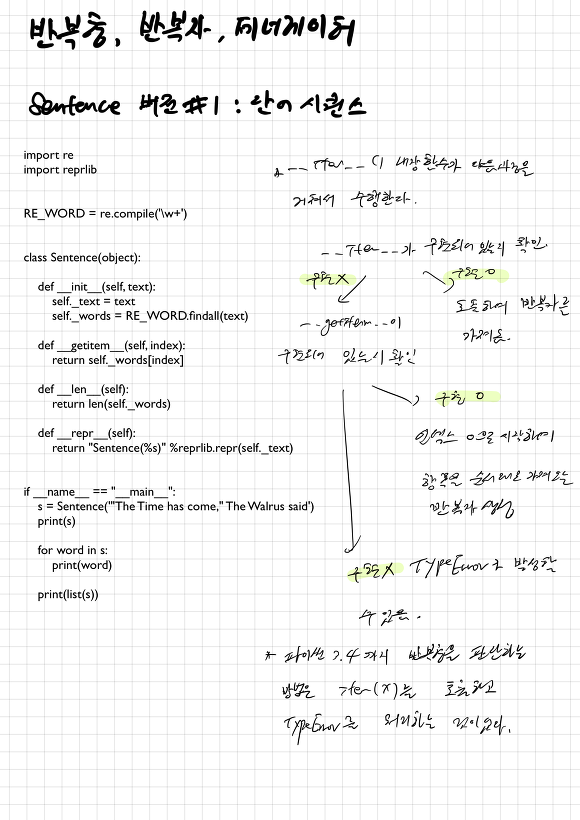 반복형, 반복자, 제너레이터
Sentence 버전 #1 : 단어 시퀀스
import re
import reprlib
RE_WORD = re.compile('\w+')
class Sentence(object):
def __init__(self, text):
self._text = text
self._words = RE_WORD.findall(text)
def __getitem__(self, index):
return self._words[index]
def __len__(self):
return len(self._words)
def __repr__(self):
return "Sentence(%s)" %reprlib.repr(self._text)
if __name__ == "__main__":
s = Sentence('"The Time has come," The Walrus said')
print(s)
for word in s:
print(word)
print(list(s))
__iter__() 내장함수가 다음 과정을
거쳐서 수행한다.
__iter__가 구현되어 있는지 확인.
구현 X
구현 O
호출하여 반복자를
가져옴.
__getitem__이
구현되어 있는지 확인
구현 O
인덱스 0으로 시작하여
항목을 순서대로 가져오는
반복자 생성
구현 X TypeError가 발생할
수 있음.
* 파이썬 3.4까지 반복형을 판단하는
방법은 iter(x)를 호출하고
TypeError를 처리하는 것이었다.